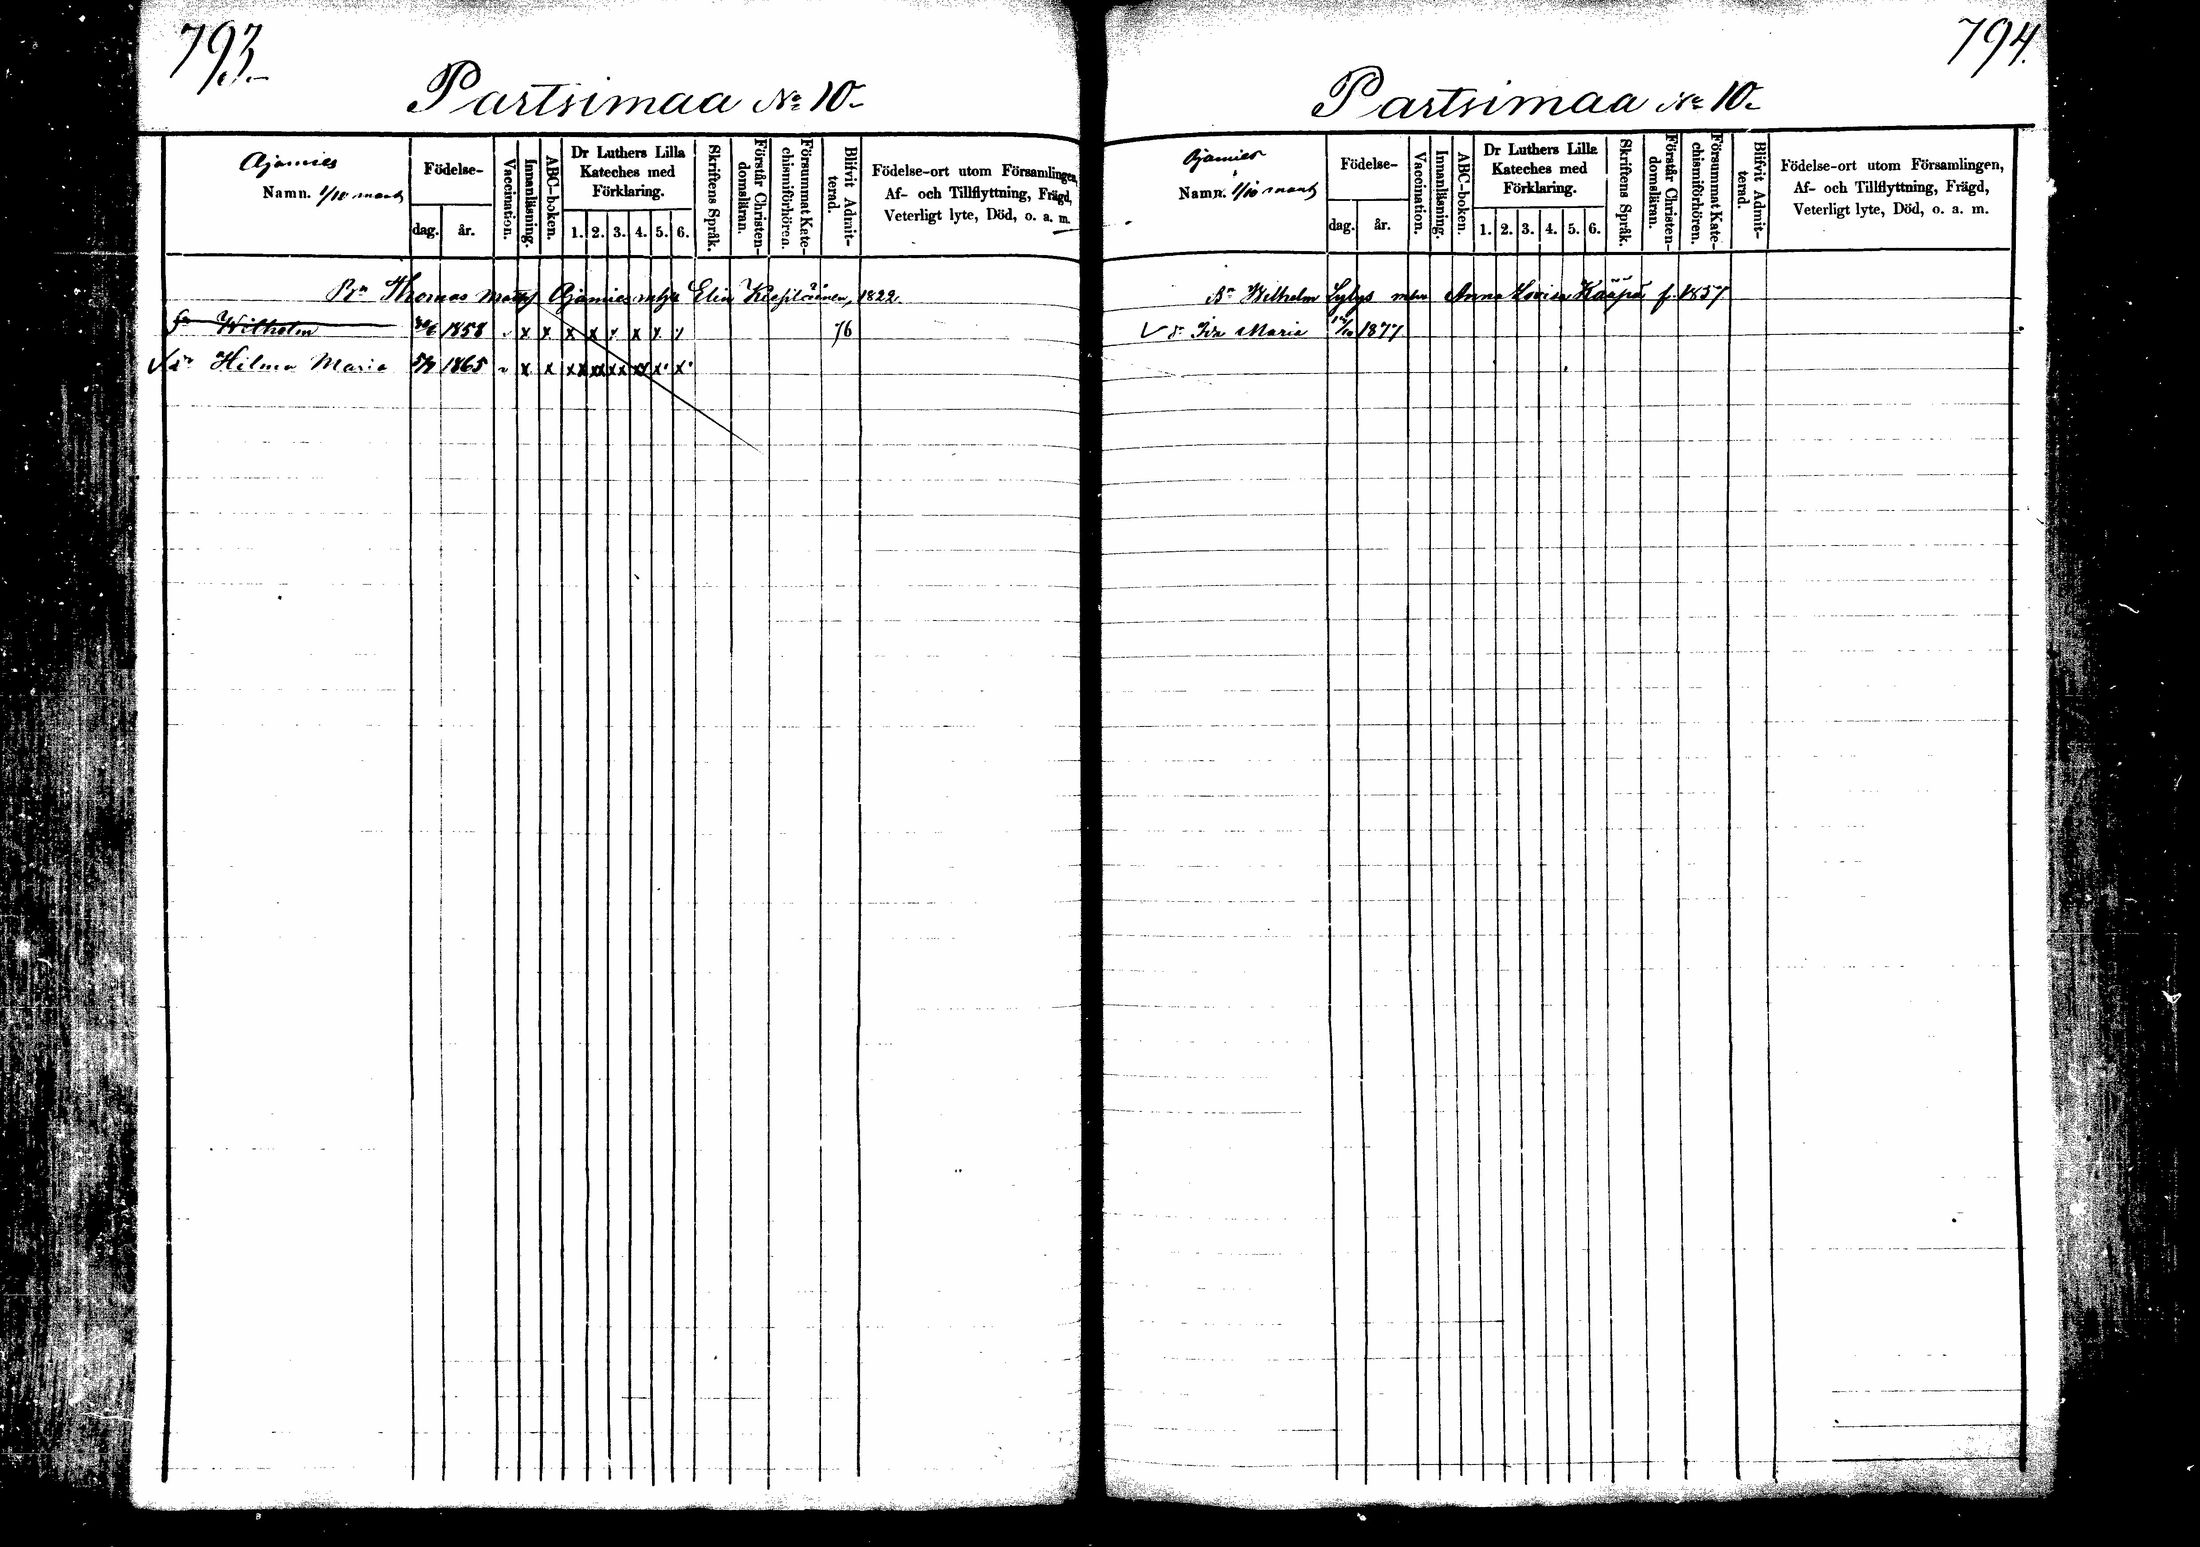 793.
Partsimaa No 10.
Ajamies
Namn. 1/10 mant
Födelse-
dag. år.
Vaccination.
Innanläsning.
ABC-boken.
Dr Luthers Lilla
Kateches med
Förklaring.
1. 2. 3. 4. 5. 6.
Skriftens Språk.
Förstår Christen-
domsläran.
Försummat Kate-
chismiförhören.
Blifvit Admit-
terad.
Födelse-ort utom Församlingen,
Af- och Tillflyttning, Frägd,
Veterligt lyte, Död, o. a. m.
Bn Thomas Ajamies Elin 1822
Wilhelm 1858 x x x x x x x x 76
√ dr Hilma Maria 5/7 1865 x x x x x x x x x x x x
794.
Partsimaa No 10.
Ajamies
Namn. 1/10 mant
Födelse-
dag. år.
Vaccination.
Innanläsning.
ABC-boken.
Dr Luthers Lilla
Kateches med
Förklaring.
1. 2. 3. 4. 5. 6.
Skriftens Språk.
Förstår Christen-
domsläran.
Försummat Kate-
chismiförhören.
Blifvit Admit-
terad.
Födelse-ort utom Församlingen,
Af- och Tillflyttning, Frägd,
Veterligt lyte, Död, o. a. m.
Bn Wilhelm Lylys Anna Lovisa Kääpä f. 1857
√ dr Ida Maria 1877